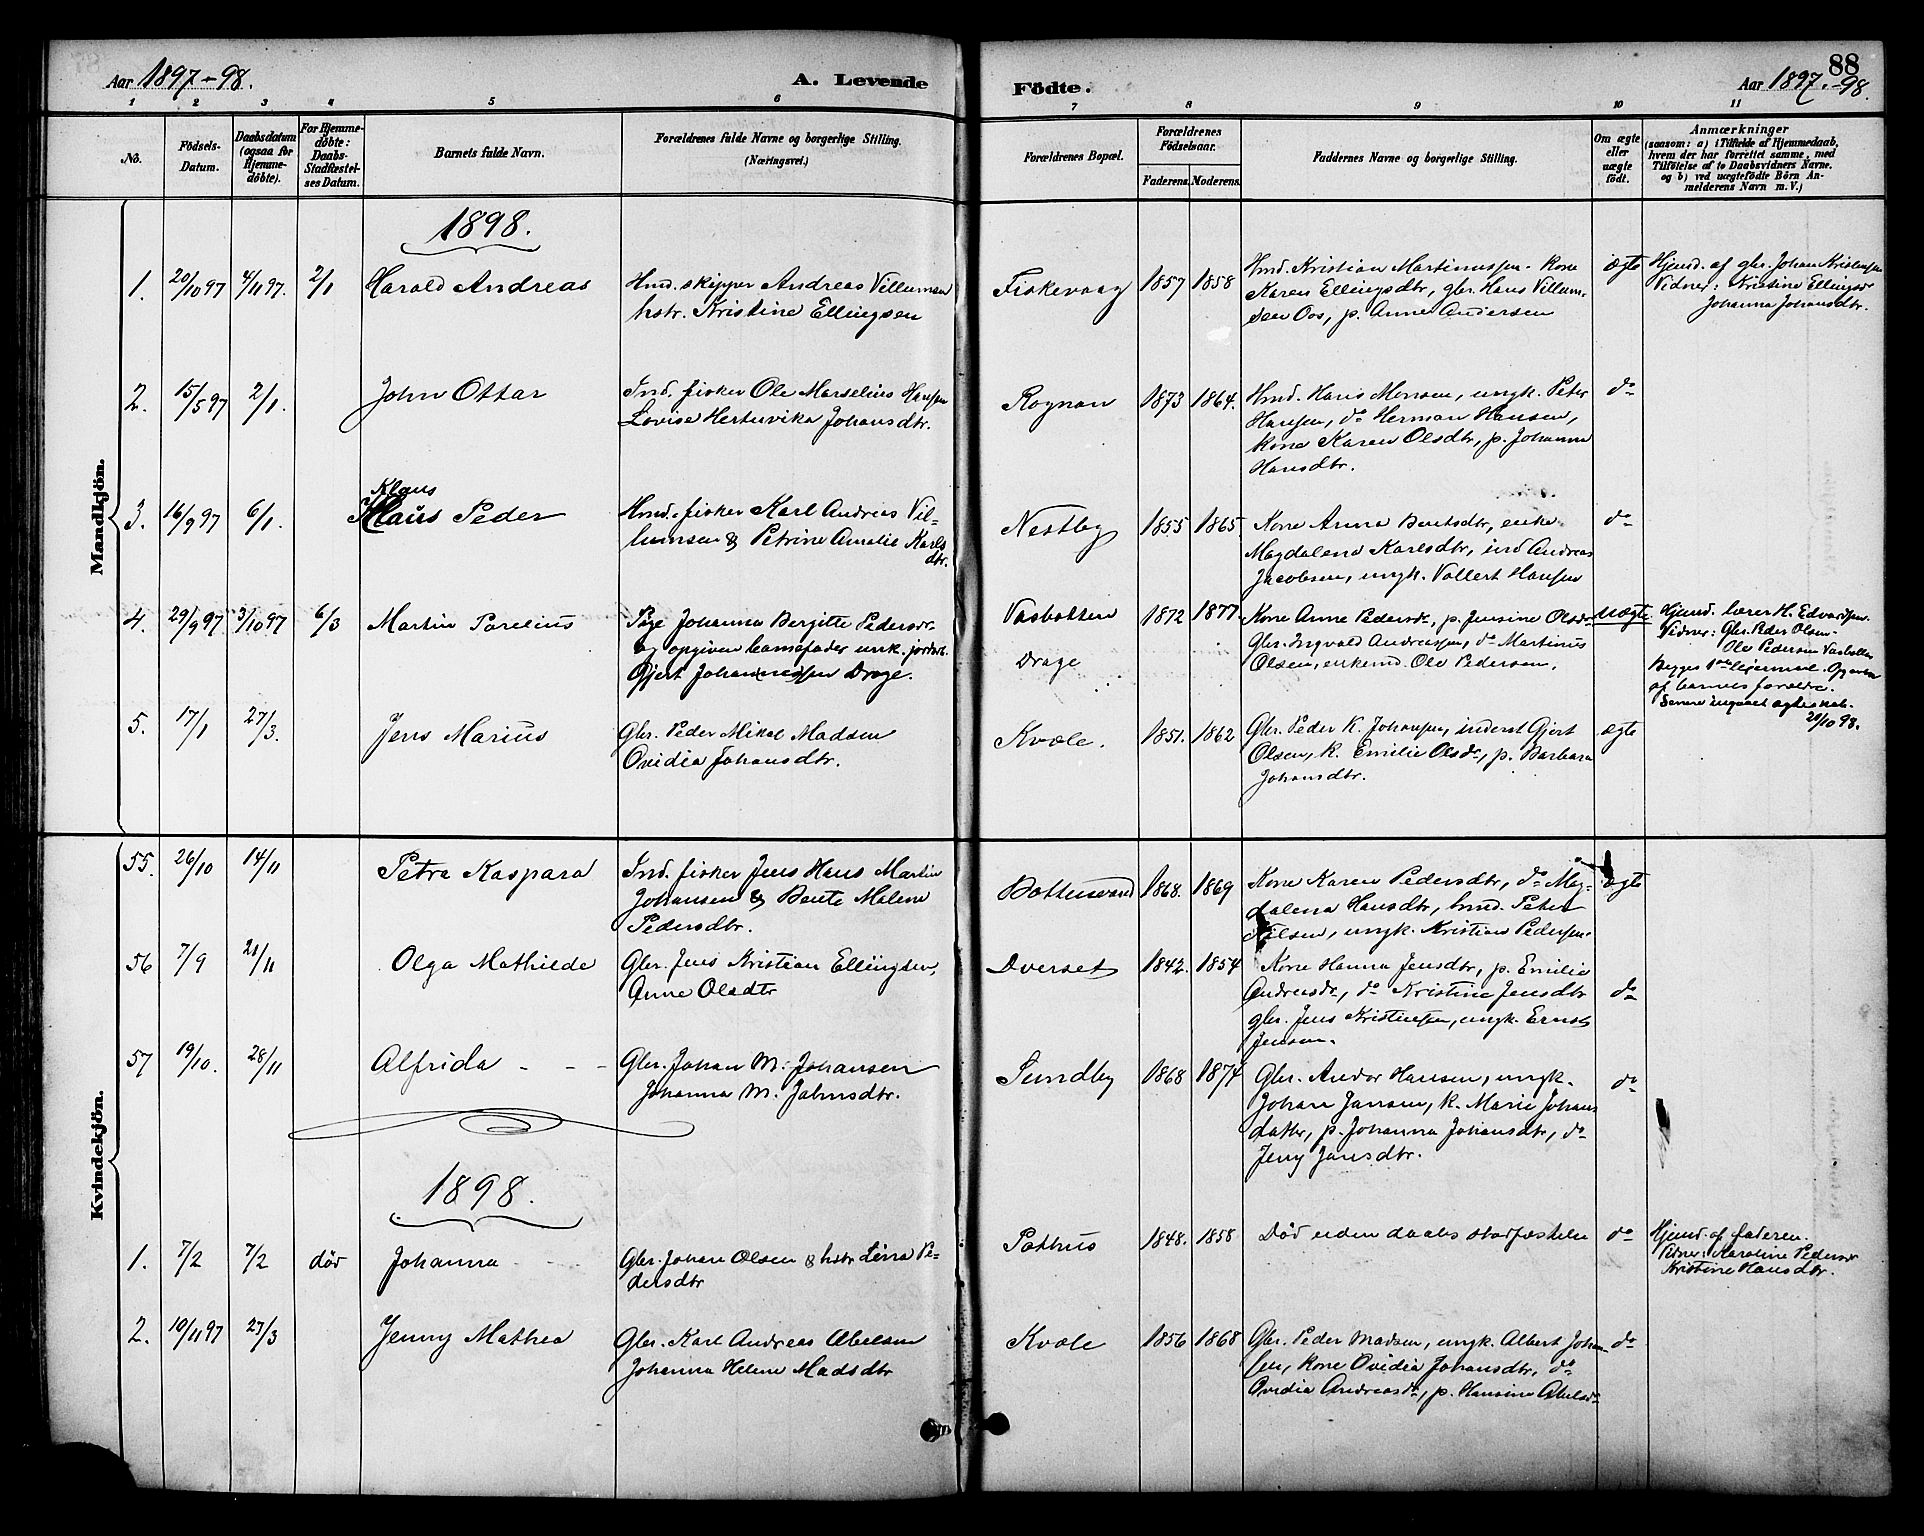 Aar 1897-98.
A. Levende
Födte.
Aar 1897.-98.
88
1 2 3 4 5 6 7 8 9 10 11
No.
Födsels-
Datum.
Daabsdatum
(ogsaa for
Hjemme-
döbte).
For Hjemme-
döbte:
Daabs-
Stadfæstel-
ses Datum.
Barnets fulde Navn.
Forældrenes fulde Navne og borgerlige Stilling.
(Næringsvei.)
Forældrenes Bopæl.
Forældrenes
Födselsaar.
Faderens. Moderens.
Faddernes Navne og borgerlige Stilling.
Om ægte
eller
uægte
födt.
Anmærkninger
(saasom: a) i Tilfælde af Hjemmedaab,
hvem der har forrettet samme, med
Tilföielse af to Daabsvidners Navne.
og b) ved uægtefödte Börn An-
melderens Navn m. V.)
Mandkjön.
1898.
1. 20/10 97 4/11 97. 2/1 Harald Andreas
Hmd. skipper Andreas Villumsen
hstr. Kristine Ellingsen
Fiskevaag 1857 1858
Hmd. Kristian Martinussen. Kone
Karen Ellingsdtr, gbr. Hans Villum-
sen Oos, p. Anne Andersen
ægte
Hjemd. af gbr. Johan Kristensen
Vidner: Kristine Ellingsdr
Johanna Johansdtr.
2. 15/5 97 2/1. John Ottar
Ind. fisker Ole Marselius Hansen
Lovise Hertervika Johansdtr.
Rognan 1873 1864.
Hmd. Hans Monsen, ungk. Peter
Hansen, do Herman Hansen,
Kone Karen Olsdtr, p. Johanna
Hansdtr.
do
3. 16/9 97 6/1. Klaus
Klaus Peder
Hmd. fisker Karl Andreas Vil-
lumsen & Petrine Amalie Karls
dtr.
Nestby 1855 1865.
Kone Anna Bentsdtr, enke
Magdalena Karlsdtr, ind Andreas
Jacobsen, ungk. Vollert Hansen
do
4. 29/9 97 3/10 97 6/3 Martin Parelius
Pige Johanna Bergitte Pedersdr.
og opgiven barnefader unk. jordarb.
Gjert Johannessen Drage.
Vasbotten
Drage
1872 1877
Kone Anne Pedersdr, p. Jensine Olsdr
Gbr. Ingvald Andreassen, do Martinus
Olsen, enkemd. Ole Pedersen.
uægte
Hjemd. lærer H. Edvardsen.
Vidner: Gbr. Peder Olsen
Ole Pedersen Vasbotten
Begges 1ste leiermaal. Opgivet
af barnets forældre.
Senere indgaaet ægteskab.
20/10 98.
5. 17/1 27/3. Jens Marius
Gbr. Peder Mikal Madsen
Ovidia Johansdtr.
Kvæle. 1851. 1862
Gbr. Peder K. Johansen, inderst Gjert
Olsen, K. Emilie Olsdr, p. Barbara
Johansdtr.
ægte
Kvindekjön.
55. 26/10 14/11 Petra Kaspara
Ind. fisker Jens Hans Martin
Johansen & Bente Malene
Pedersdtr.
Bottensvand 1868. 1869
Kone Karen Pedersdtr, do Mag-
dalena Hansdtr, hmd. Peter
Nilsen, ungk. Kristian Pedersen.
ægte
56 7/9 21/11 Olga Mathilde
Gbr. Jens Kristian Ellingsen,
Anne Olsdtr
Dverset 1842. 1854
Kone Hanna Jensdtr, p. Emilie
Andreasdr, do Kristine Jensdtr
gbr. Jens Kristensen, ungk. Ernst
Jensen.
do
57 19/10. 28/11 Alfrida - - -
Gbr. Johan M. Johansen
Johanna M. Jahnsdtr.
Sundby 1868 1874
Gbr. Andor Hansen, ungk.
Johan Jansen, k. Marie Johans
datter, p. Johanna Johansdtr, do
Jeny Jansdtr.
do
1898.
1. 7/2 7/2 död Johanna -
Gbr. Johan Olsen & hstr Lina Pe-
dersdtr
Pothus 1848. 1858
Död uden daabs stadfæstelse
do
Hjemd. af faderen.
Vidner: Karoline Pedersdr
Kristine Hansdtr.
2. 10/11 97 27/3 Jenny Mathea
Gbr. Karl Andreas Abelsen
Johanna Helene Madsdtr
Kvæle 1856 1868
Gbr. Peder Madsen, ungk. Albert Johan-
sen, Kone Ovidia Johansdtr, do
Ovidia Andreasdr, p. Hansine Abelsdr
do